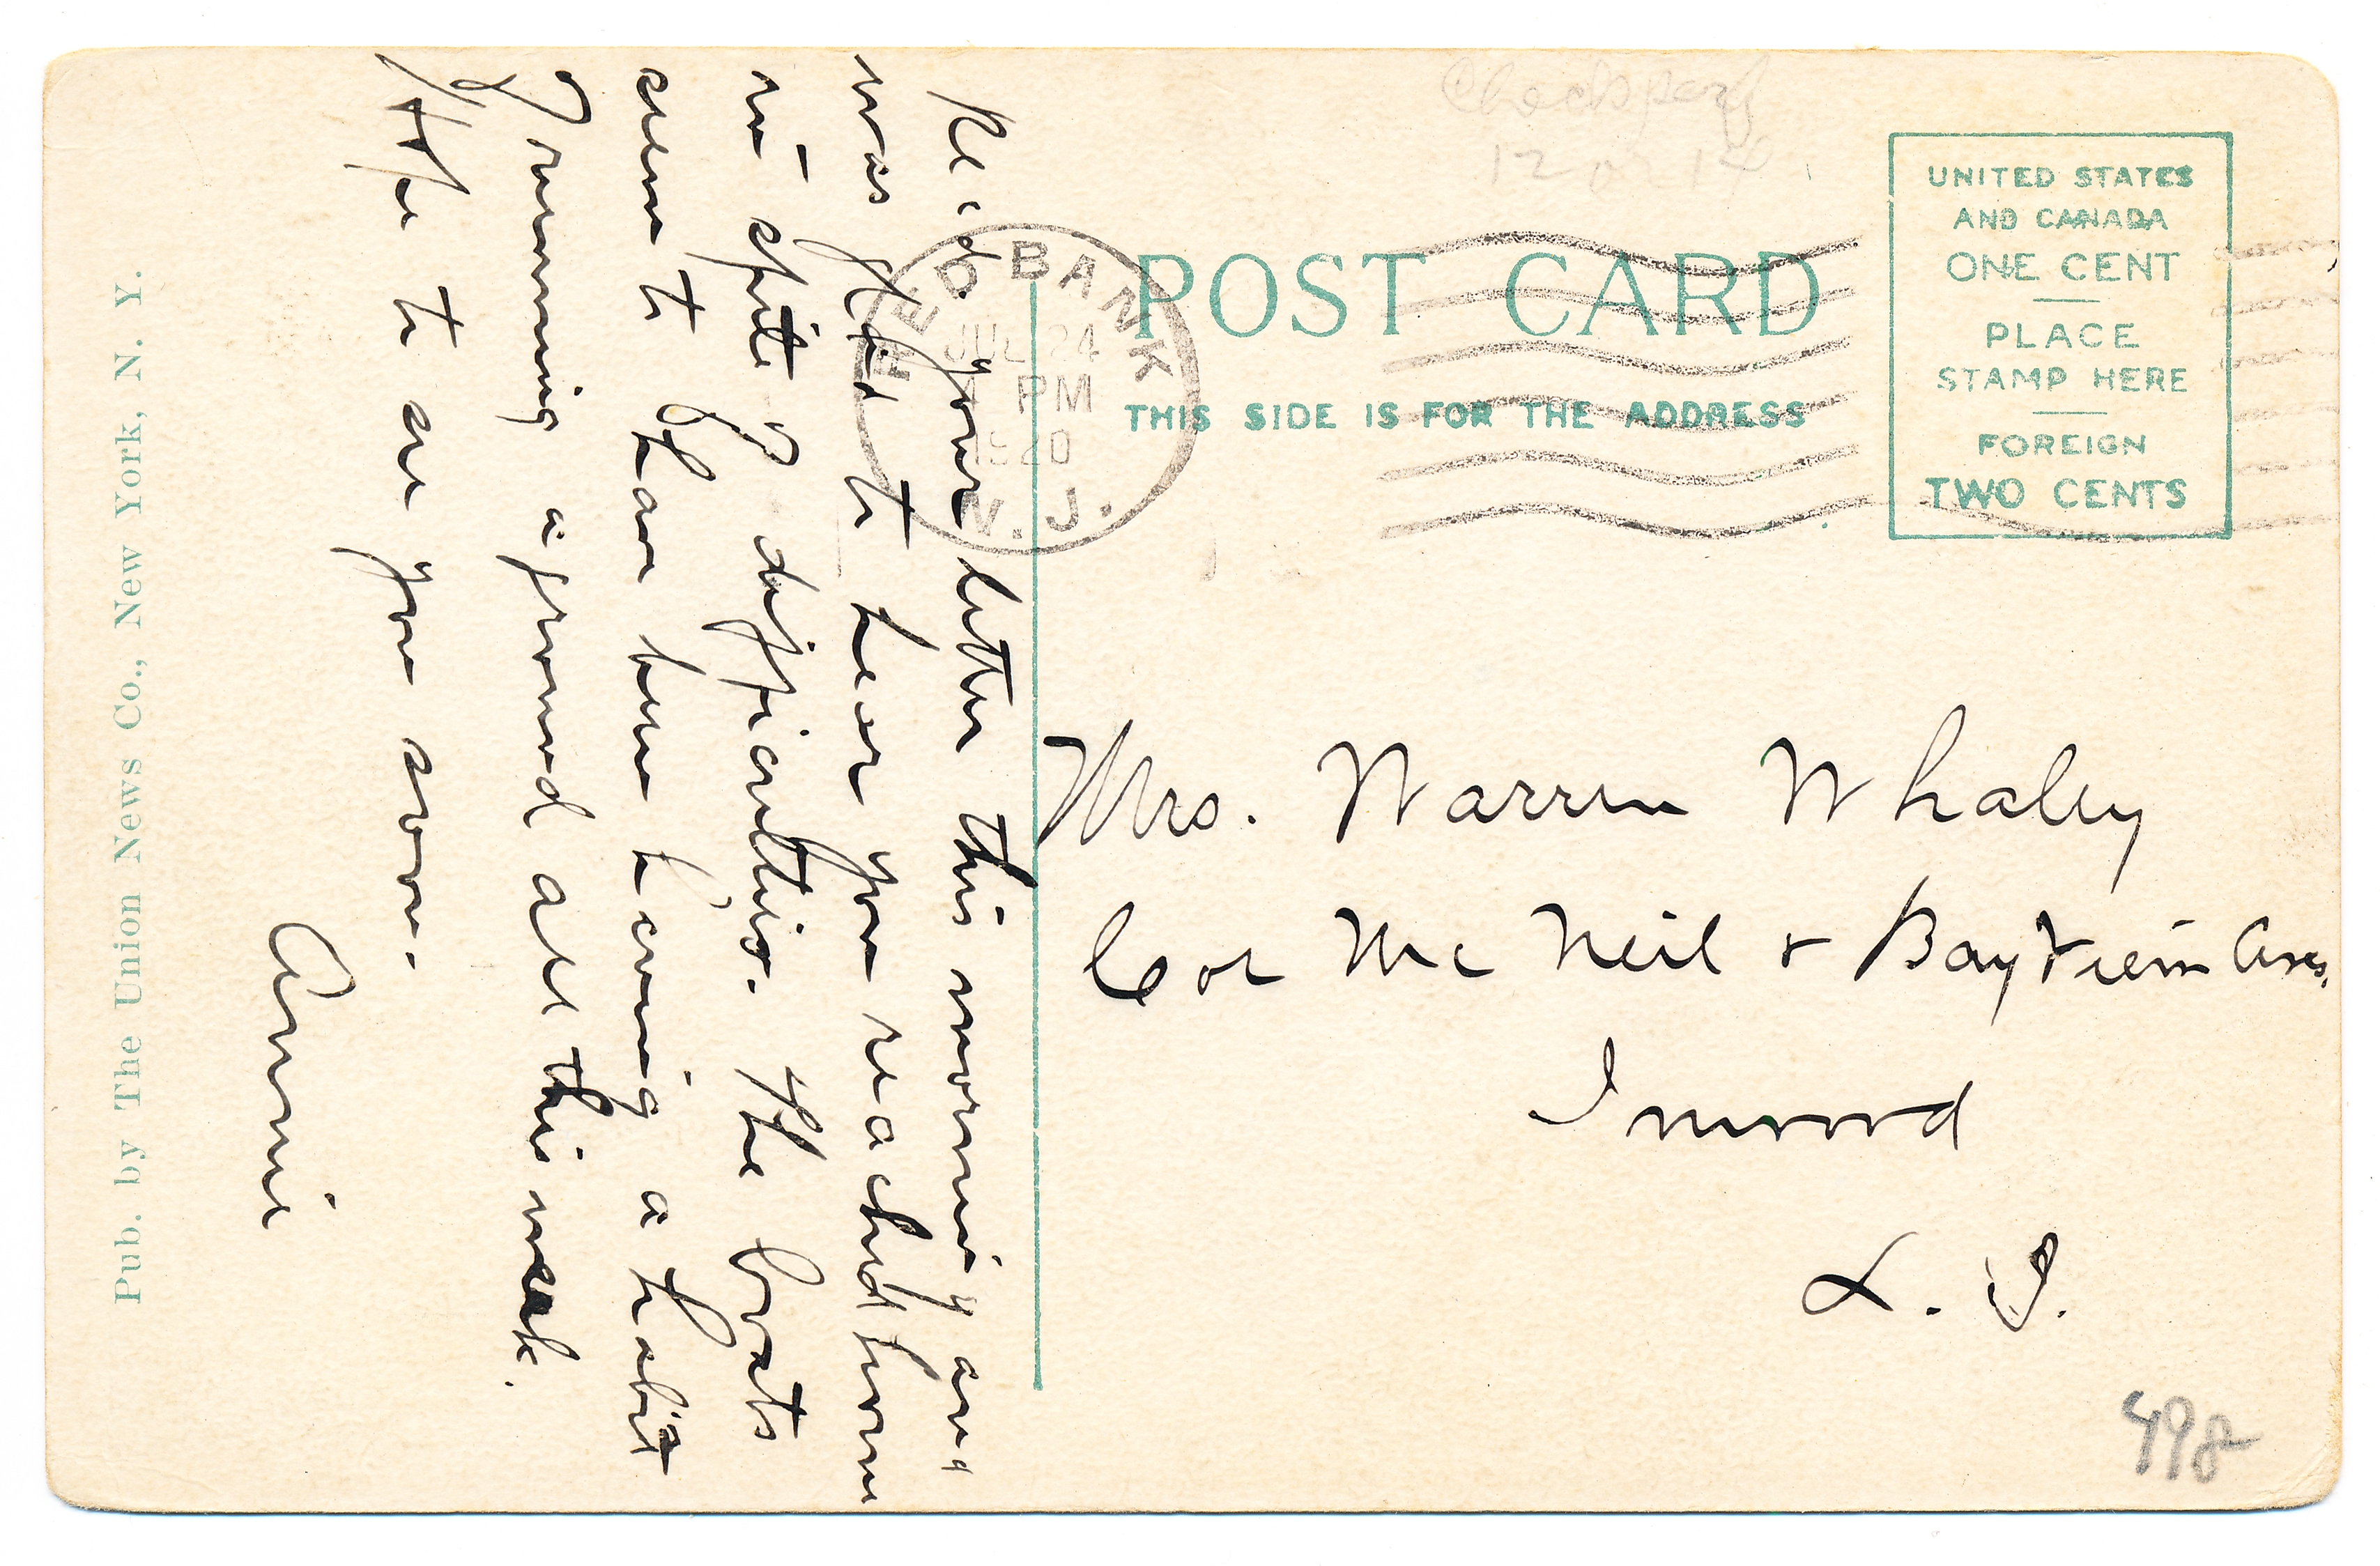 Checksperf
12 or 14
POST CARD
THIS SIDE IS FOR THE ADDRESS
UNITED STATES
AND CANADA
ONE CENT
PLACE
STAMP HERE
FOREIGN
TWO CENTS
RED BANK
JUL 24
PM
1920
N.J.
Rec'd. your letter this morning and
was glad to hear you reached home
in spite of difficulties. The boats
seem to have been having a habit
of running aground all this week.
Hope to see you soon.
Annie
Mrs. Warren Whaley
Cor Mc Neil + Bayview Aves.
Inwood
L. I.
498
Pub. by The Union News Co., New York, N. Y.